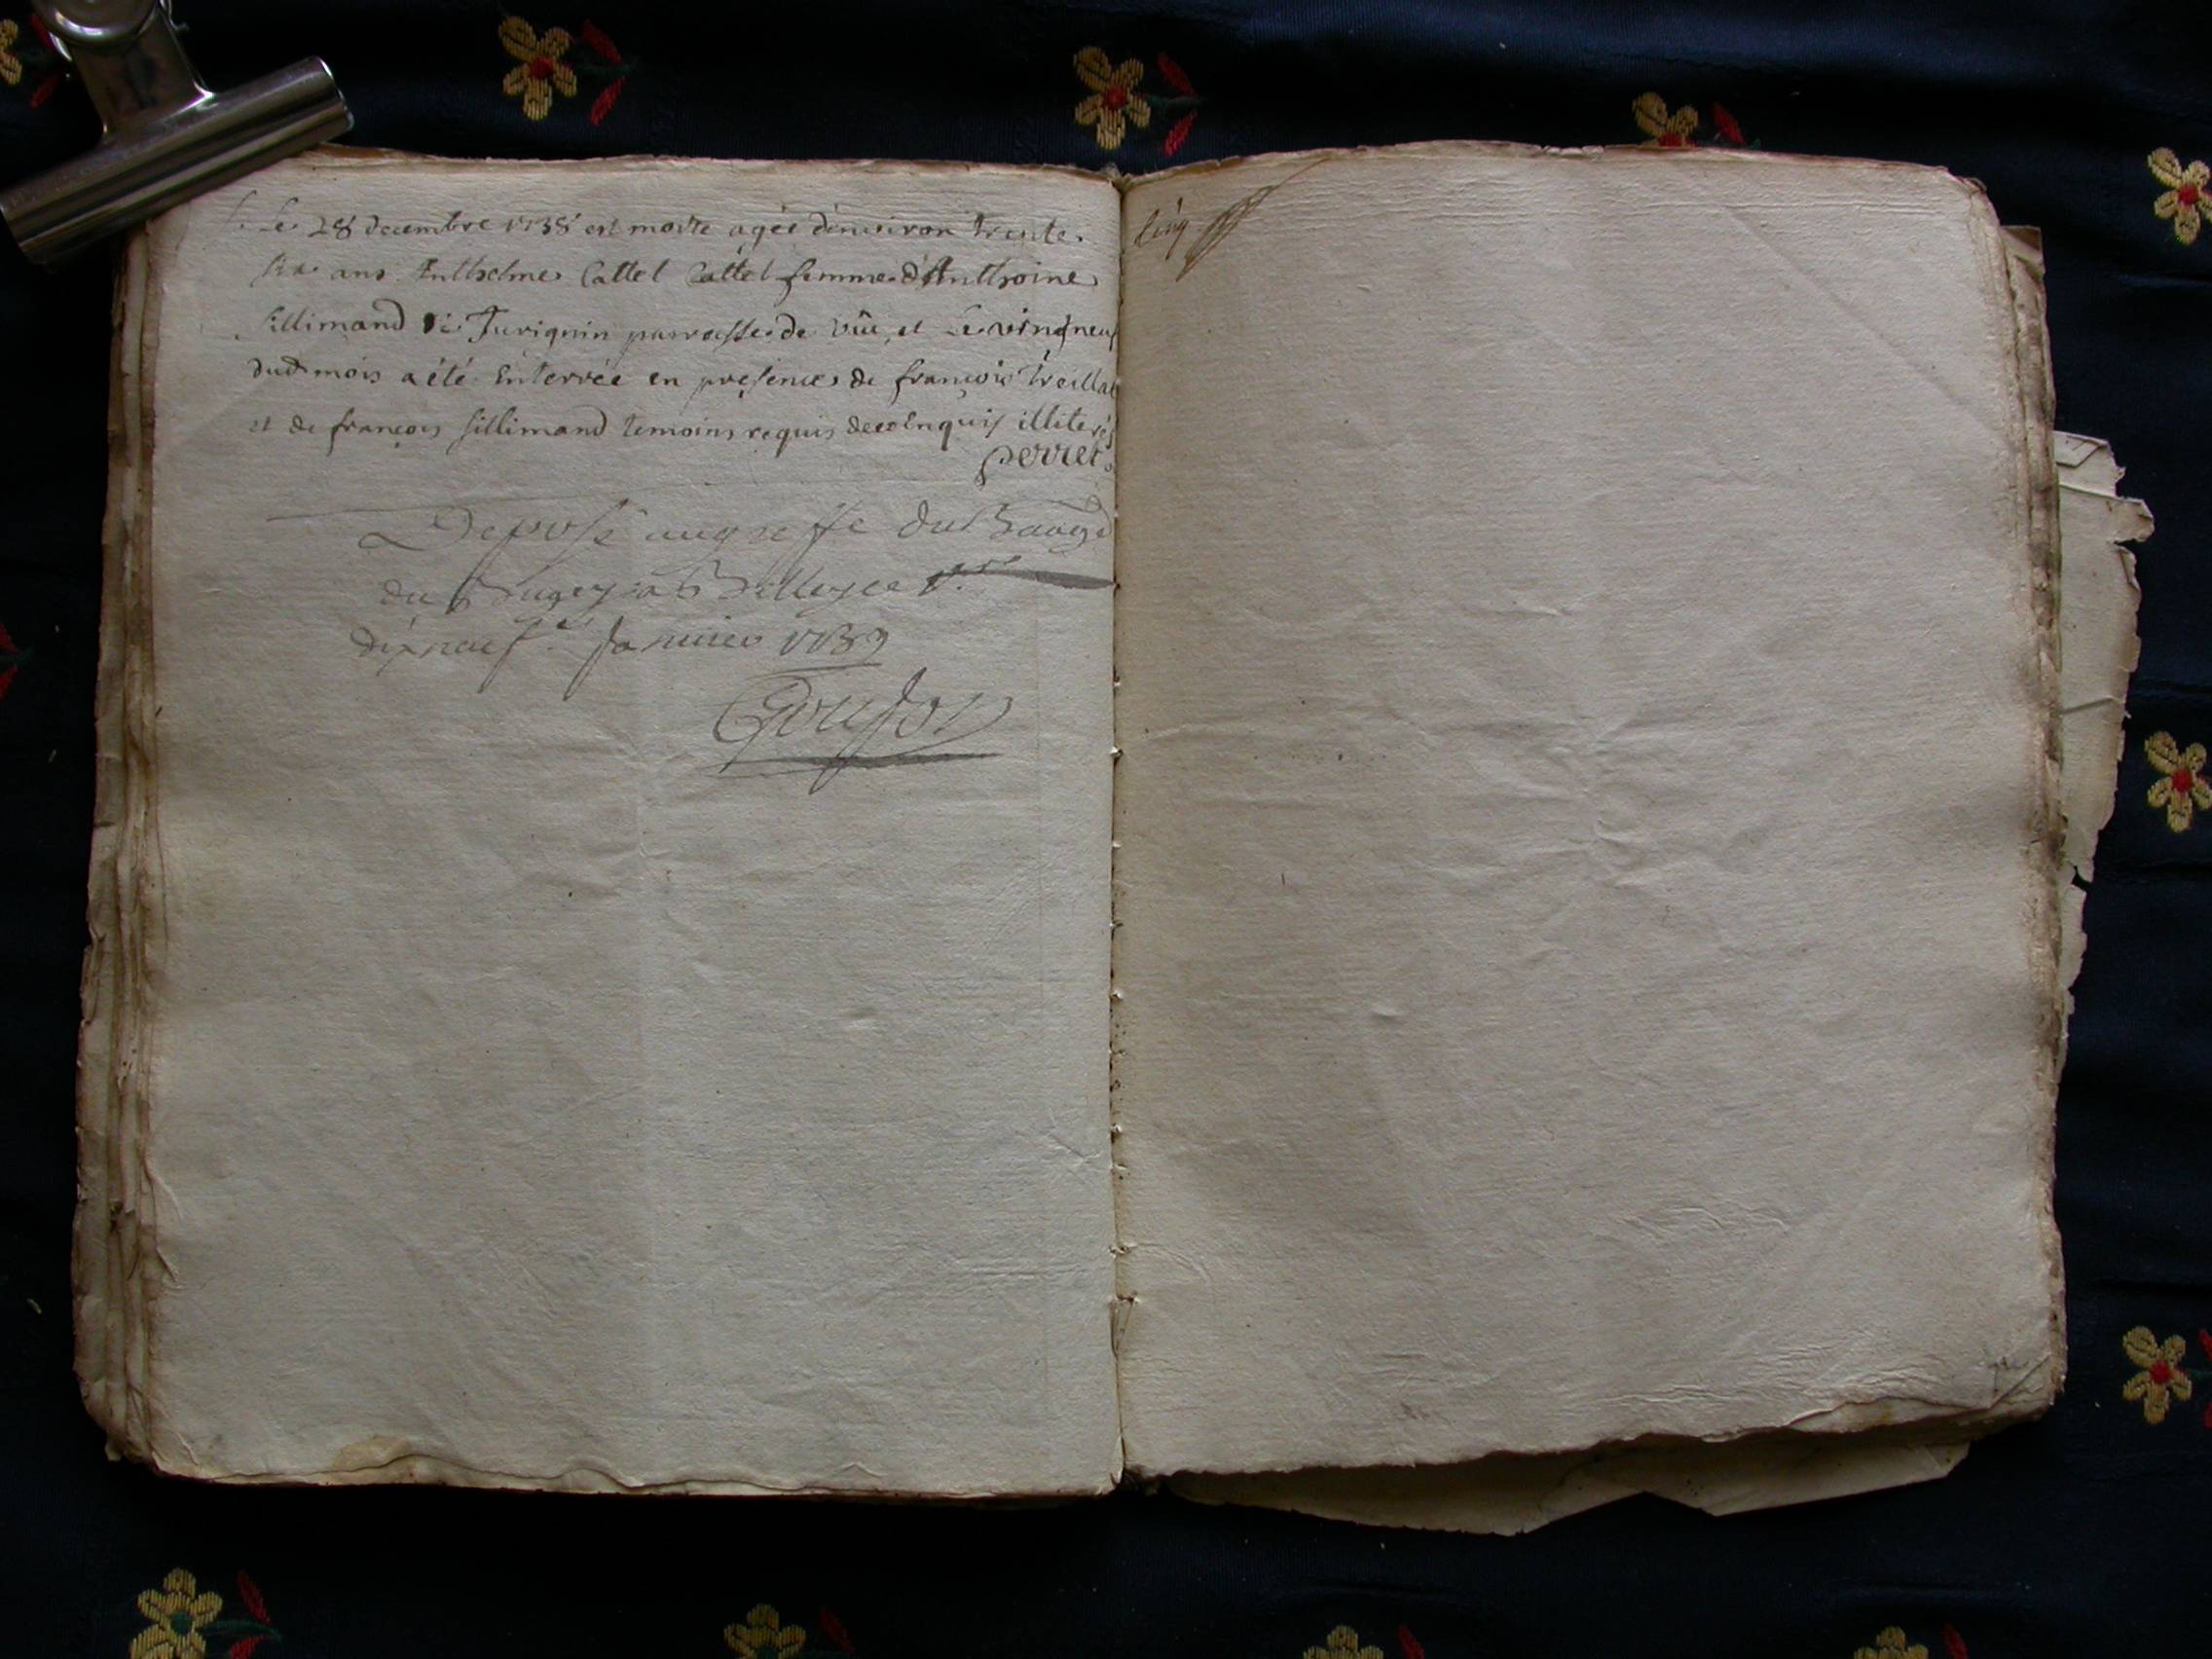 Le 28 decembre 1738 est morte agée d'environ trente
six ans Anthelme Cattel Cattel femme d'Anthoine
Sillimand de Jurignin parroisse de et le vingneuf
dud mois a été Enterrée en presence de françois treillat
et de françois Sillimand temoins requis de ce Enquis illiterés
perret
Deposé au greffe du Bailliage
du Bugey a Belleyce
dixneuf.e Janvier 1739
Goujon